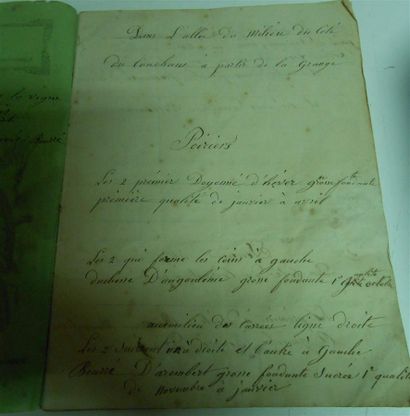 la vigne
Dans L'allée du Milieu du Coté
du Couchant à partir de la Grange
Poiriers
Les 2 prémier Doyenné d'hiver grosse fondante
première qualité de janvier à avril
Les 2 qui forme les coins à gauche
duchesse D'angoulème grosse fondante 1e qualité octobre
au milieu des carrées ligne droite
Les 2 suivant à droite et l'autre à Gauche
Beurré D'aremberg grosse fondante Sucrée 1e qualité
de Novembre à janvier